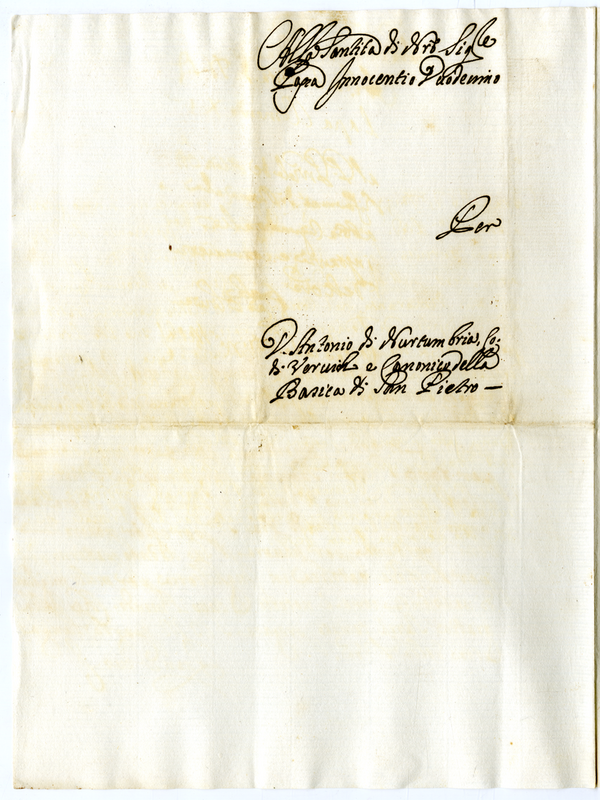 Alla Santità di Nrõ Sigre
Papa Innocentio Duodecimo
Per
D. Antonio di Nortumbria, Co:
di Veruich e Canonico della
Basica di San Pietro —